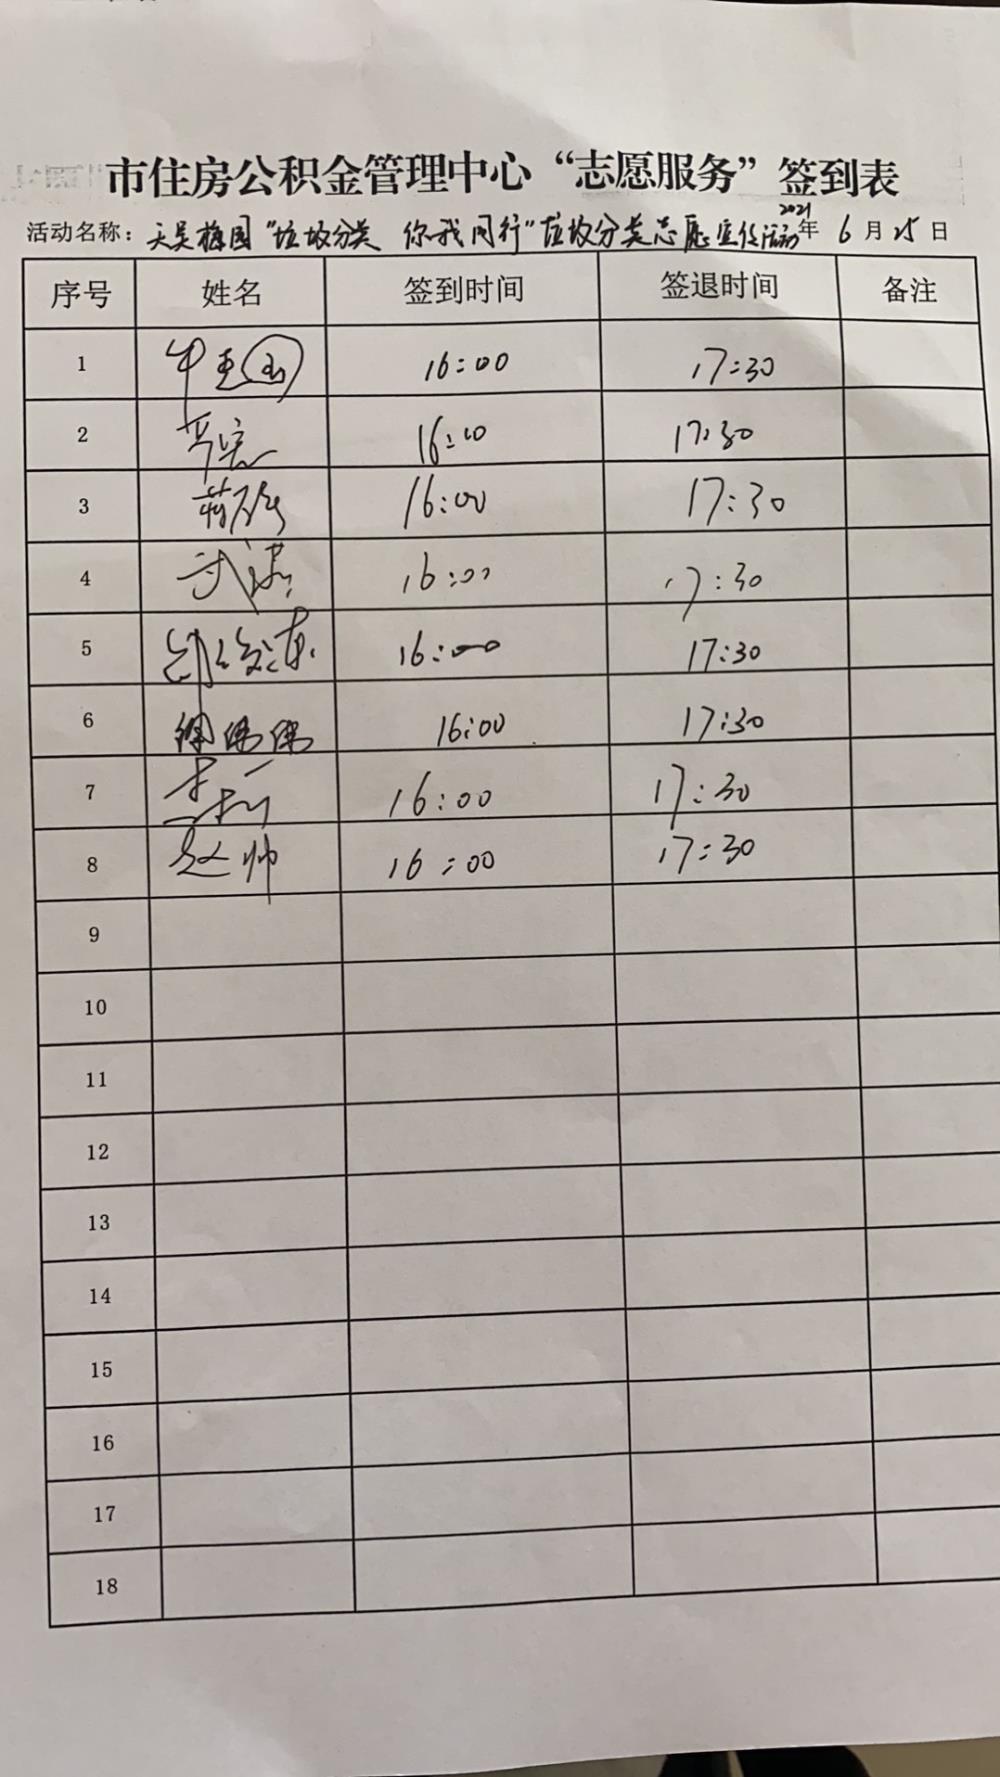 市住房公积金管理中心“志愿服务”签到表
活动名称：天吴梅园“垃圾分类 你我同行”垃圾分类志愿宣传活动 2021年 6月25日
序号 姓名 签到时间 签退时间 备注
1 16:00 17:30
2 16:00 17:30
3 16:00 17:30
4 武涛 16:00 17:30
5 16:00 17:30
6 徐伟伟 16:00 17:30
7 16:00 17:30
8 赵帅 16:00 17:30
9
10
11
12
13
14
15
16
17
18